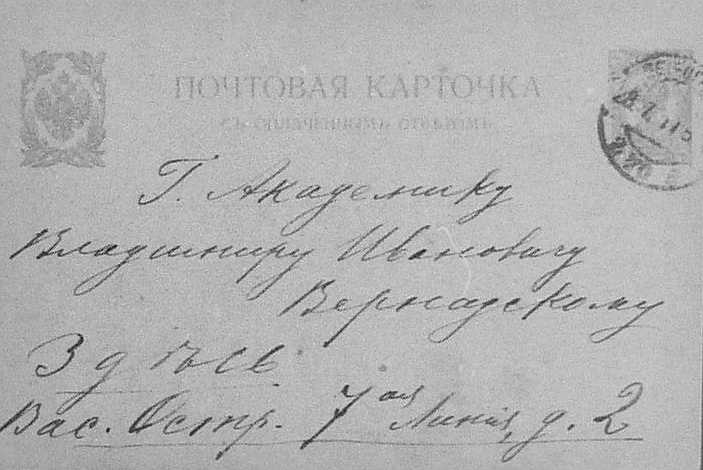 ПОЧТОВАЯ КАРТОЧКА
СЪ ОПЛАЧЕННЫМЪ ОТВѢТОМЪ
Г. Академику
Владимиру Ивановичу
Вернадскому
Здѣсь
Вас. Остр. 7ая Линія, д. 2